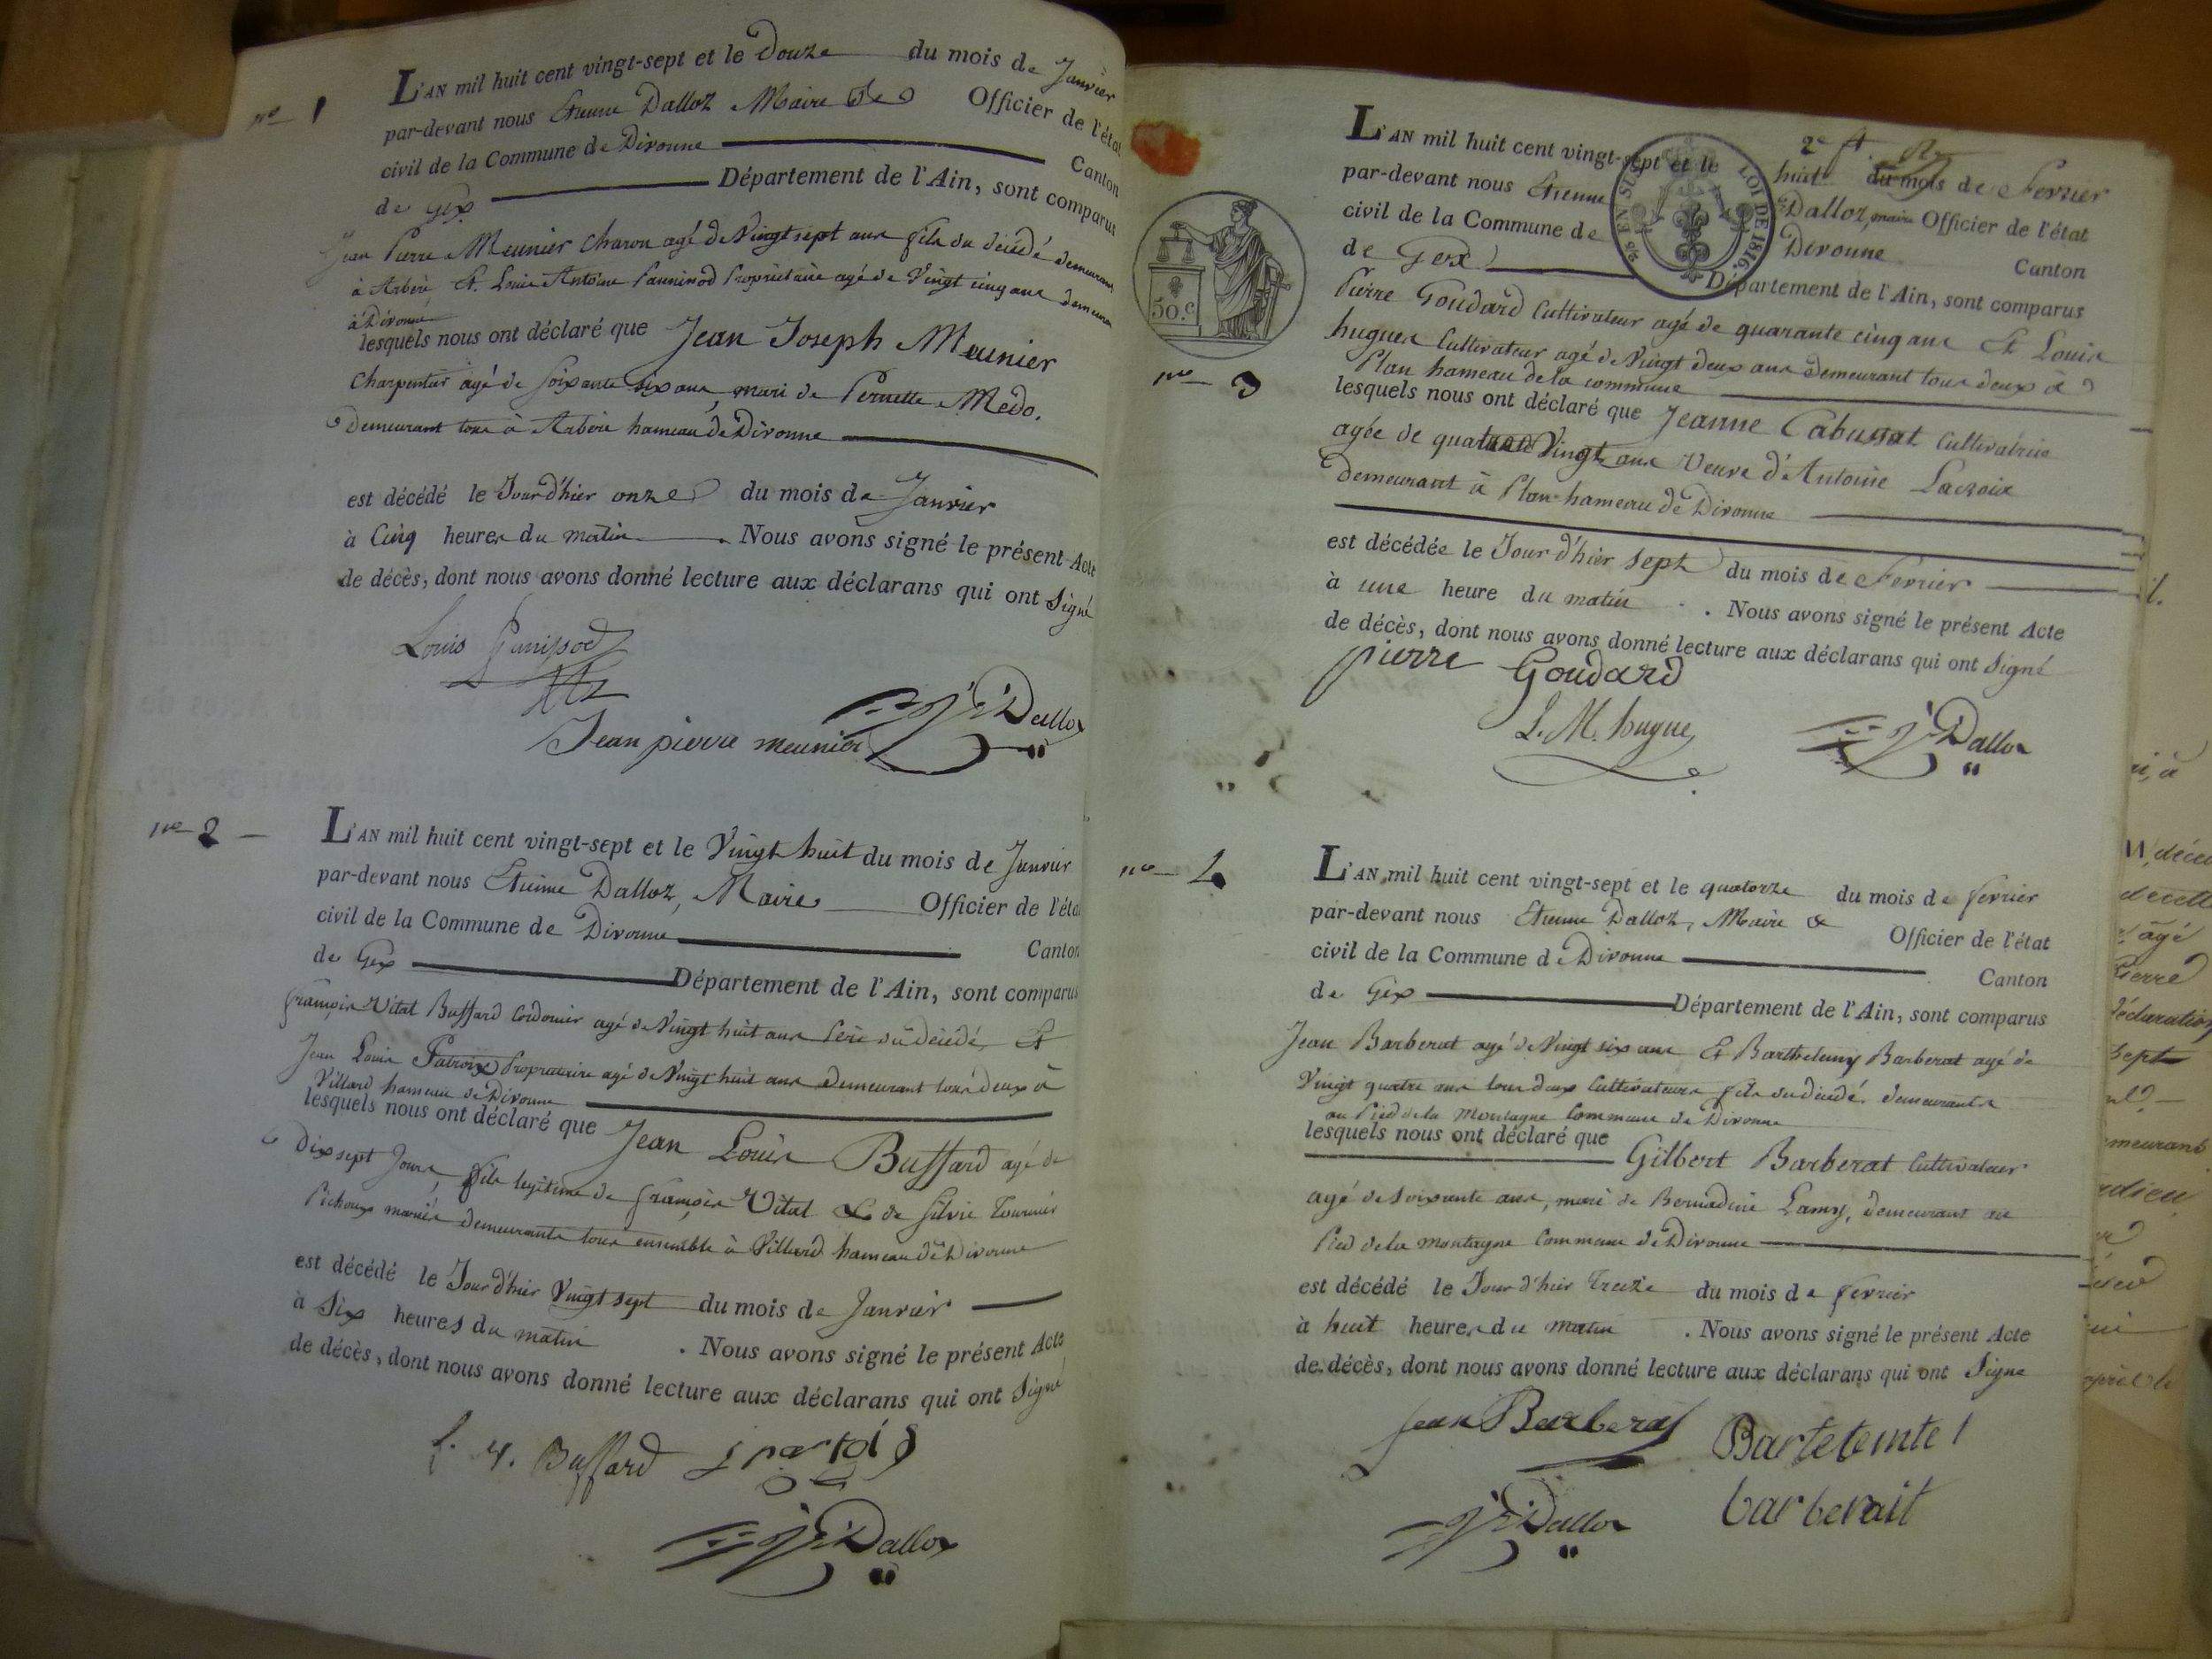 nº 1
L'AN mil huit cent vingt-sept et le Douze du mois de Janvier
par-devant nous Etienne Dalloz Maire Officier de l'état
civil de la Commune de Divonne Canton
de Gex Département de l'Ain, sont comparus
Jean Pierre Meunier Charon agé de Vingt sept ans fils du décédé demeurant
à Arbère Et Louis Antoine Propriétaire agé de Vingt cinq ans
à Divonne
lesquels nous ont déclaré que Jean Joseph Meunier
Charpentier agé de Soixante six ans, mari de Pernette Medo.
Demeurant tous à Arbère hameau de Divonne
est décédé le Jour d'hier onze du mois de Janvier
à Cinq heures du matin. Nous avons signé le présent Acte
de décès, dont nous avons donné lecture aux déclarans qui ont Signé
Louis
Jean pierre meunier Dalloz
nº 2
L'AN mil huit cent vingt-sept et le Vingt huit du mois de Janvier
par-devant nous Etienne Dalloz, Maire Officier de l'état
civil de la Commune de Divonne Canton
de Gex Département de l'Ain, sont comparus
françois Vital Buffard Cordonier agé de Vingt huit ans Père du décédé, Et
Jean Louis Propriétaire agé de Vingt huit ans Demeurant tous deux à
Villard hameau de Divonne
lesquels nous ont déclaré que Jean Louis Buffard agé de
Dix sept Jours, fils legitime de françois Vital & de Silvie Tournier
mariés demeurants tous ensemble à Villard hameau de Divonne
est décédé le Jour d'hier Vingt sept du mois de Janvier
à Six heures du matin. Nous avons signé le présent Acte
de décès, dont nous avons donné lecture aux déclarans qui ont Signé
f. v. Buffard
Dalloz
2e ft.
L'AN mil huit cent vingt-sept et le huit du mois de Fevrier
par-devant nous Etienne Dalloz, maire Officier de l'état
civil de la Commune de Divonne Canton
de Gex Département de l'Ain, sont comparus
LOI DE 1816.
50.c
Pierre Goudard Cultivateur agé de quarante cinq ans Et Louis
hugues Cultivateur agé de Vingt deux ans Demeurant tous deux à
Plan hameau de la commune
nº 3
lesquels nous ont déclaré que Jeanne Cabussat Cultivatrice
agée de quatre Vingt ans Veuve d'Antoine Lacroix
Demeurant à Plan hameau de Divonne
est décédée le Jour d'hier sept du mois de Fevrier
à une heure du matin. Nous avons signé le présent Acte
de décès, dont nous avons donné lecture aux déclarans qui ont Signé
pierre Goudard
L. M. hugue Dalloz
nº 4
L'AN mil huit cent vingt-sept et le quatorze du mois de fevrier
par-devant nous Etienne Dalloz, Maire & Officier de l'état
civil de la Commune de Divonne Canton
de Gex Département de l'Ain, sont comparus
Jean Barberat agé de Vingt six ans Et Barthelemy Barberat agé de
Vingt quatre ans tous deux Cultivateurs fils du décédé demeurants
au Pied de la Montagne Commune de Divonne
lesquels nous ont déclaré que Gilbert Barberat Cultivateur
agé de Soixante ans, mari de Bernadine Lamy, demeurant au
Pied de la Montagne Commune de Divonne
est décédé le Jour d'hier Treize du mois de fevrier
à huit heures du matin. Nous avons signé le présent Acte
de décès, dont nous avons donné lecture aux déclarans qui ont Signé
Jean Barberat
barberait
Dalloz